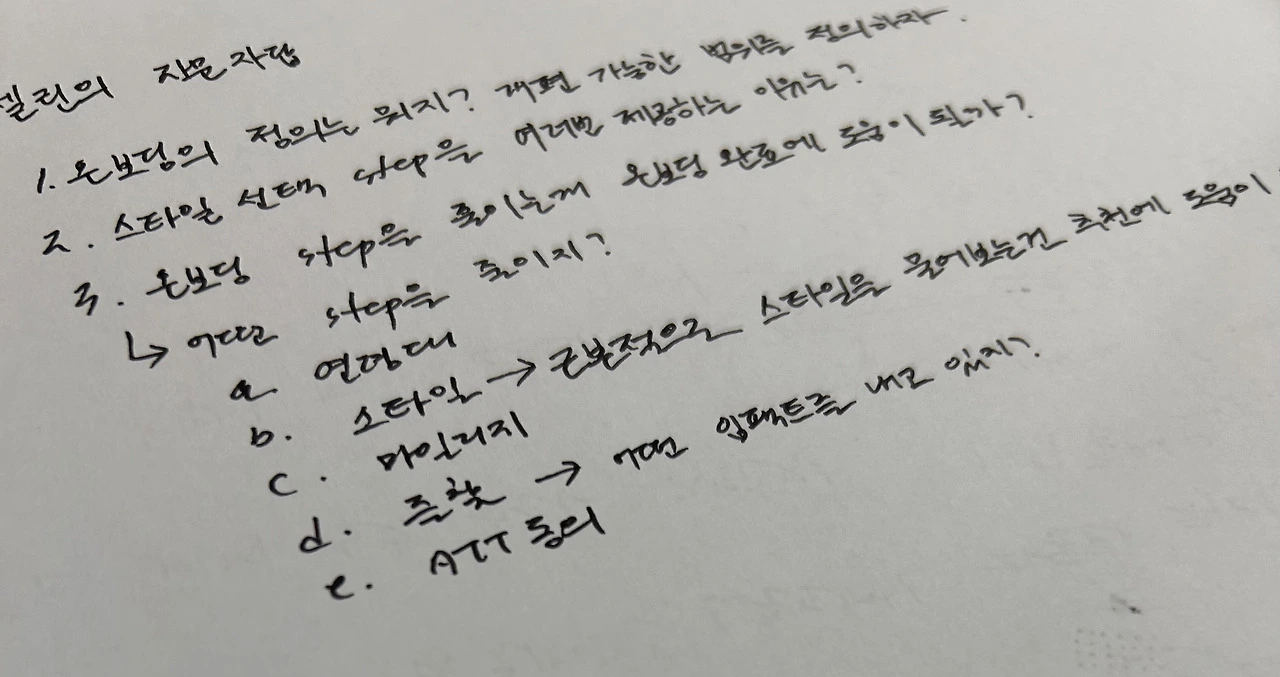 셀린의 자문자답
1. 온보딩의 정의는 뭐지? 개편 가능한 범위를 정의하자.
2. 스타일 선택 step을 여러번 제공하는 이유는?
3. 온보딩 step을 줄이는게 온보딩 완료에 도움이 될까?
↳ 어떤 step을 줄이지?
a. 연령대
b. 스타일 → 근본적으로 스타일을 물어보는건 추천에 도움이
c. 마일리지
d. 즐찾 → 어떤 임팩트를 내고 있지?
e. ATT 동의